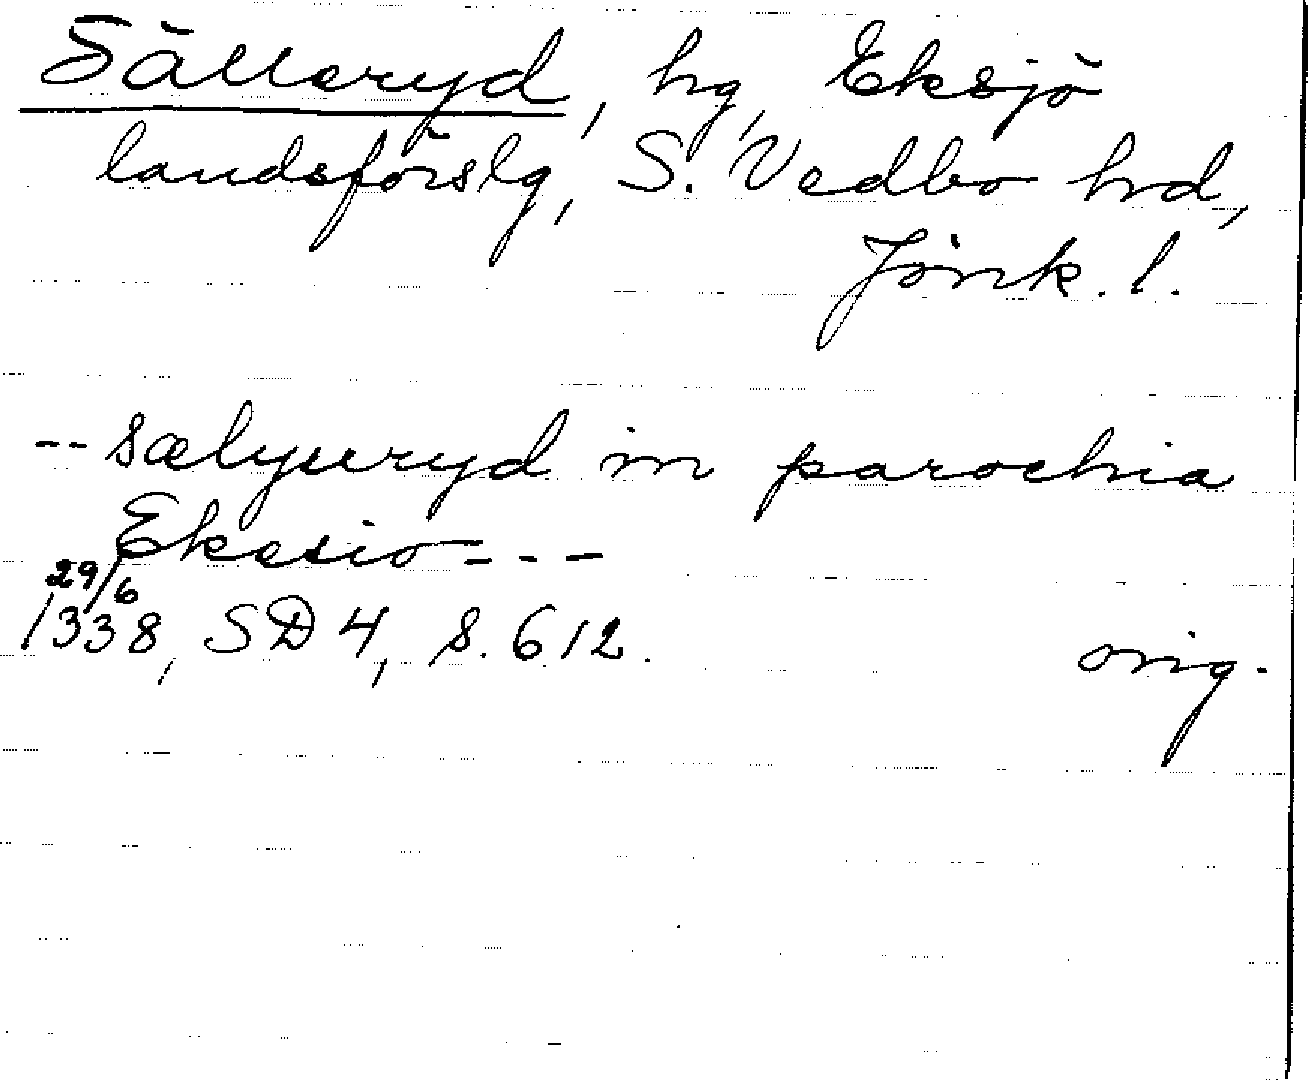 Sälleryd, hg, Eksjö
landsförslg, S. Vedbo hd,
Jönk. l.
-- sælyuryd in parochia
Ekesio - - -
29/6
1338, SD 4, s. 612.
orig.